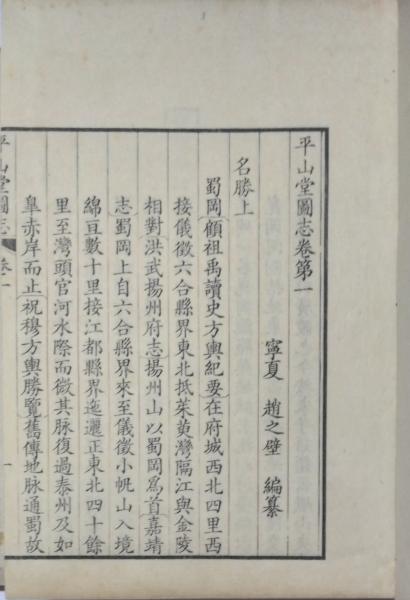 平山堂圖志卷第一
寧夏 趙之壁 編纂
名勝上
蜀岡顧祖禹讀史方輿紀要在府城西北四里西
接儀徵六合縣界東北抵茱萸灣隔江與金陵
相對洪武揚州府志揚州山以蜀岡爲首嘉靖
志蜀岡上自六合縣界來至儀徵小帆山入境
綿亘數十里接江都縣界迤邐正東北四十餘
里至灣頭官河水際而微其脉復過泰州及如
臯赤岸而止祝穆方輿勝覽舊傳地脉通蜀故
平山堂圖志 卷一
一